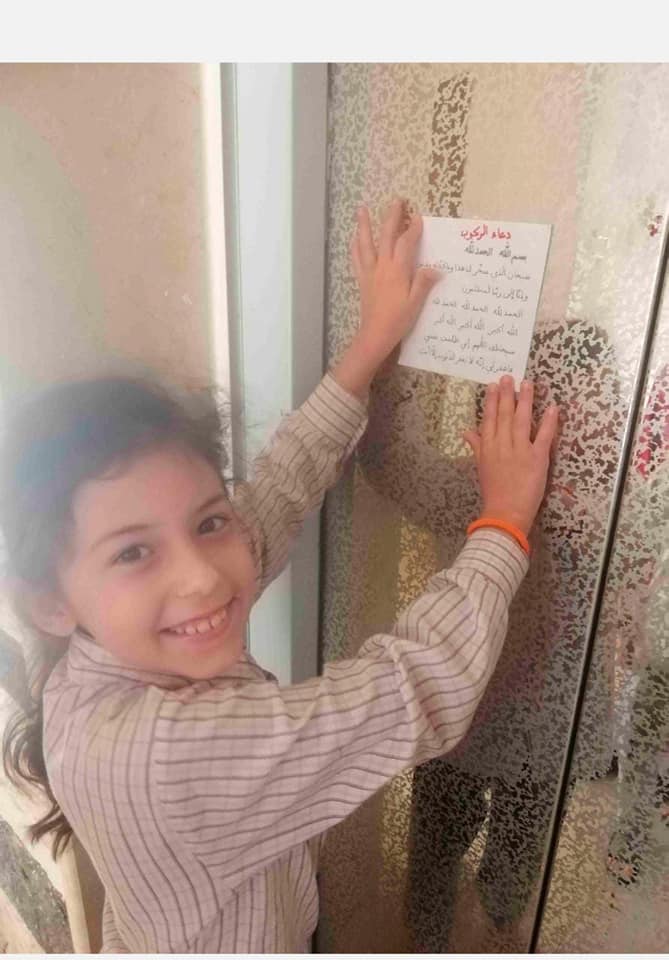 دعاء الركوب
بسم الله الحمد لله
سبحان الذي سخّر لنا هذا وما كنّا له
وإنّا إلى ربّنا لمنقلبون
الحمد لله الحمد لله الحمد لله
الله أكبر الله أكبر الله أكبر
سبحانك اللّهم إني ظلمت نفسي
فاغفر لي إنّه لا يغفر الذنوب إلّا أنت